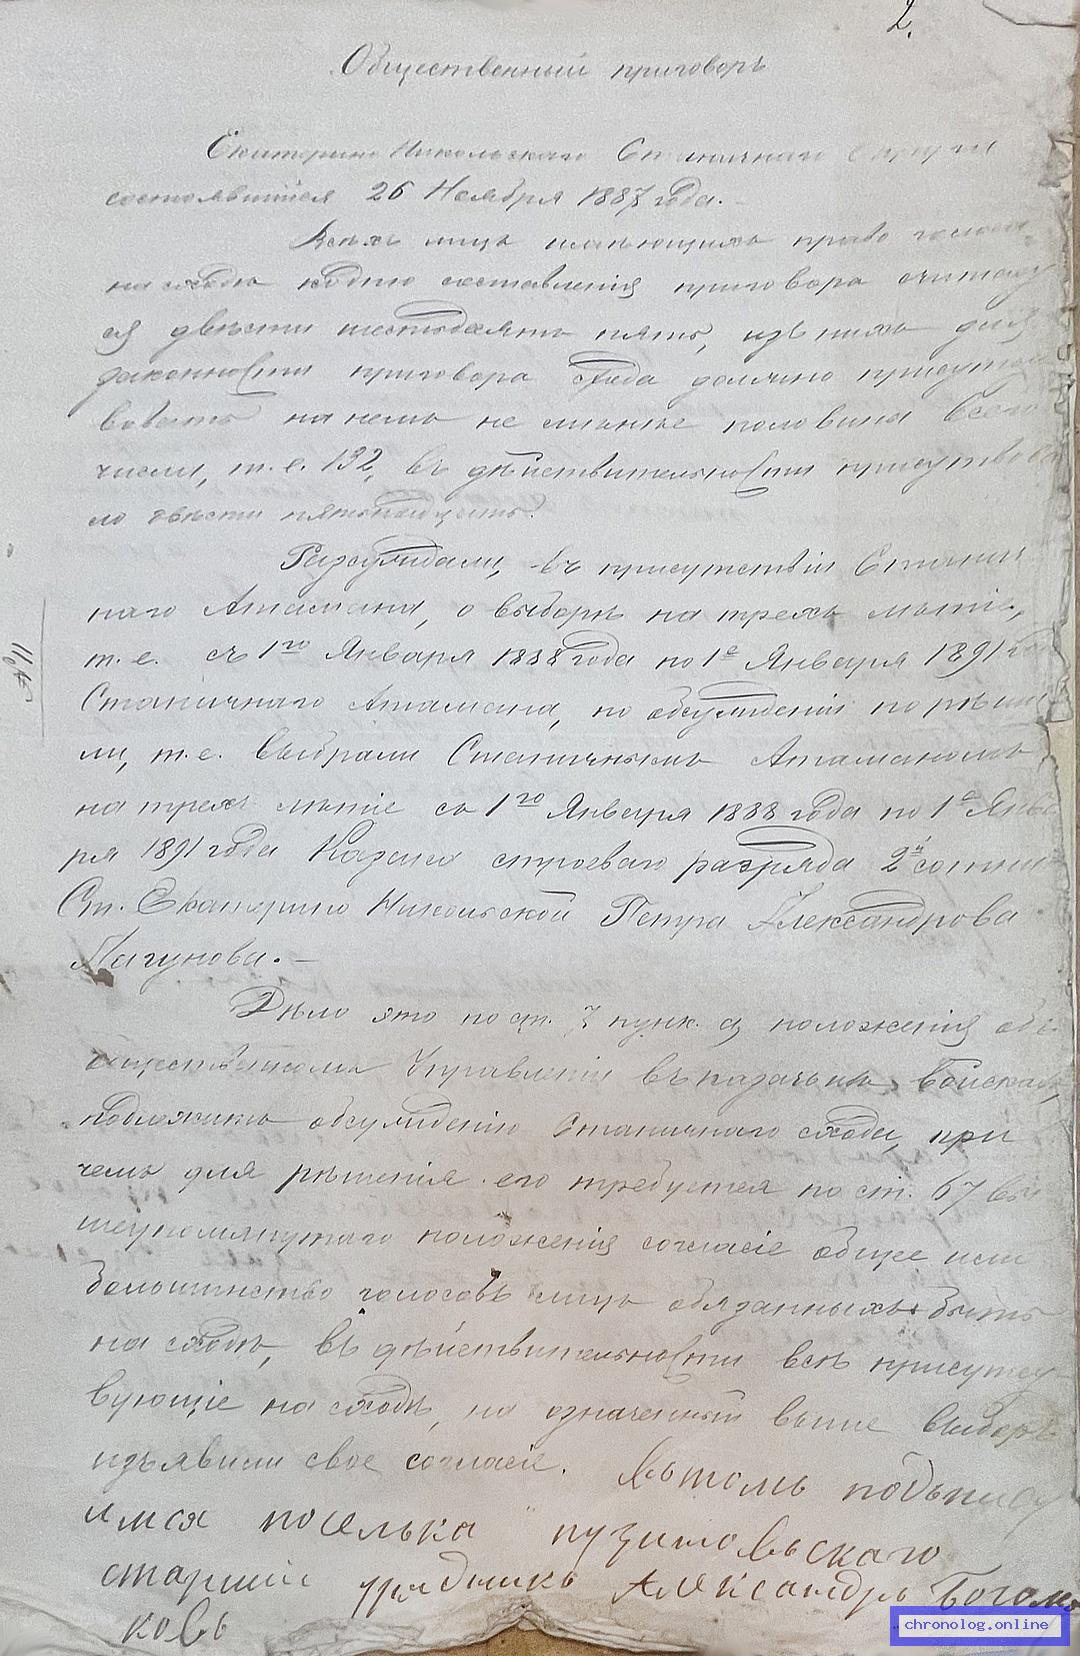 2.
Общественный приговоръ
Екатерино Никольскаго Станичнаго округа
состоявшійся 26 Ноября 1887 года. –
Всѣхъ лицъ имѣющихъ право голоса
на сходѣ ко дню составленія приговора считает
ся двѣсти шестьдесятъ пять, изъ нихъ для
законности приговора схода должно присутст
вовать на немъ не менѣе половины всего
числа, т. е. 132, въ дѣйствительности присутствова
ло двѣсти пятнадцать.
Разсуждали, въ присутствіи Станич
наго Атамана, о выборѣ на трехъ лѣтіе,
т. е. съ 1го Января 1888 года по 1е Января 1891 года
Станичнаго Атамана, по обсужденіи порѣши
ли, т. е. выбрали Станичнымъ Атаманомъ
на трехъ лѣтіе съ 1го Января 1888 года по 1е Янва
ря 1891 года Казака строеваго разряда 2й сотни
Ст. Екатерино Никольской Петра Александрова
Лагунова. –
Дѣло это по ст. 7 пунк. а положенія объ
общественномъ Управленіи въ казачьихъ войскахъ,
подлежитъ обсужденію Станичнаго схода, при
чемъ для рѣшенія его требуется по ст. 67 вы
шеупомянутаго положенія согласіе общее или
большинство голосовъ лицъ обязанныхъ быть
на сходѣ, въ дѣйствительности всѣ присутст
вующіе на сходѣ, на означенный выше выборъ
изъявили свое согласіе. Вътомъ подъпису
имся поселька пузиновьскаго
старшій урядникъ Александръ Богомя
ковъ
chronolog.online